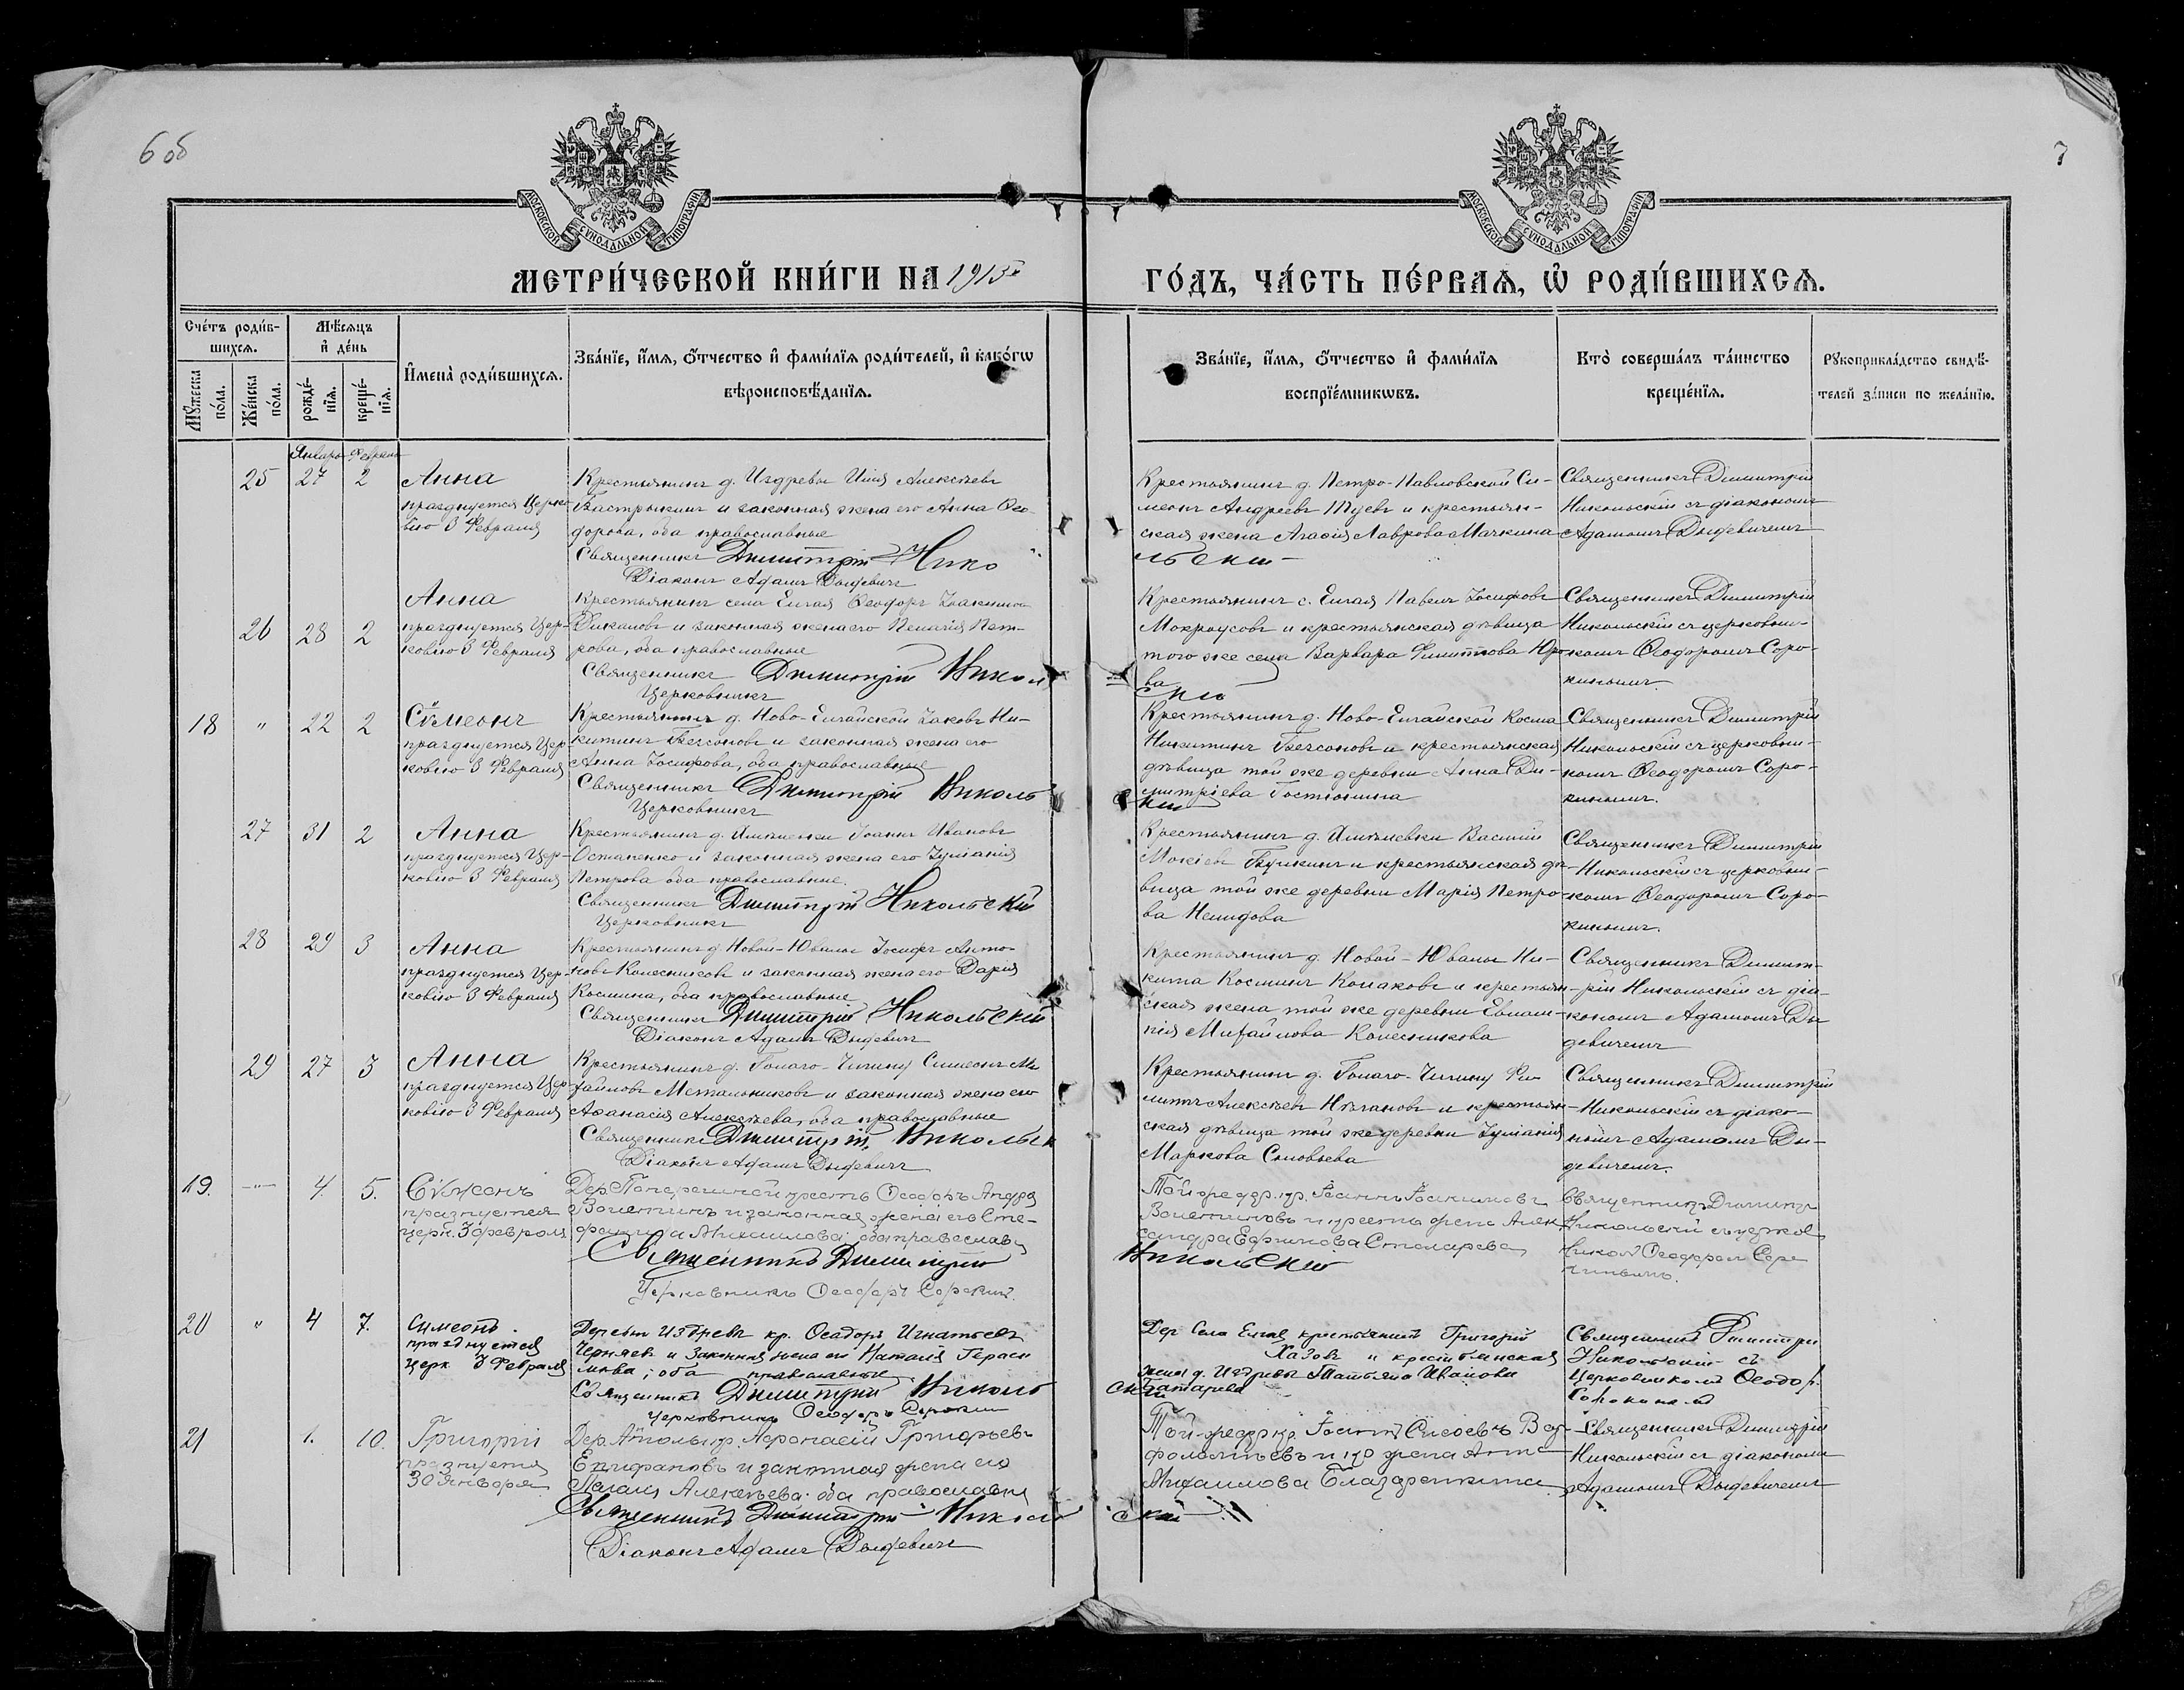 6 об
7
МОСКОВСКОЙ СѴНОДАЛЬНОЙ ТИПОГРАФІИ
МОСКОВСКОЙ СѴНОДАЛЬНОЙ ТИПОГРАФІИ
МЕТРИ́ЧЕСКОЙ КНИ́ГИ НА 1913й
ГО́ДЪ, ЧА́СТЬ ПЕ́РВАѦ, Ѡ҆ РОДИ́ВШИХСѦ.
Сче́тъ роди́в-
шихсѧ.
Мѣ́сѧцъ
и҆ де́нь
Мꙋ́жеска
по́ла.
Же́нска
по́ла.
рожде́-
нїѧ.
креще́-
нїѧ.
И҆мена̀ роди́вшихсѧ.
Зва́нїе, и҆́мѧ, ѻ҆́тчество и҆ фами́лїѧ роди́телей, и҆ како́гѡ
вѣроисповѣ́данїѧ.
Зва́нїе, и҆́мѧ, ѻ҆́тчество и҆ фами́лїѧ
воспрїе́мникѡвъ.
Кто̀ соверша́лъ та́инство
креще́нїѧ.
Рꙋкоприкла́дство свидѣ́-
телей за́писи по жела́нїю.
Январь Февраль
25 27 2 Анна
празднуется Церко-
вію 3 Февраля
Крестьянинъ д. Издревы Илія Алексѣевъ
Бастрыкинъ и законная жена его Анна Ѳео-
дорова, оба православные
Священникъ Димитрій Нико
льскій
Діаконъ Адамъ Дыдевичъ
Крестьянинъ д. Петро-Павловской Си-
меонъ Андреевъ Туевъ и крестьян-
ская жена Агаѳія Лаврова Мачкина
Священникъ Димитрій
Никольскій съ діакономъ
Адамомъ Дыдевичемъ
26 28 2 Анна
празднуется Цер-
ковію 3 Февраля
Крестьянинъ села Елтая Ѳеодоръ Іоакимовъ
Дикаловъ и законная жена его Пелагія Пет-
рова, оба православные
Священникъ Димитрій Никол
скій
Церковникъ
Крестьянинъ с. Елтая Павелъ Іосифовъ
Мокроусовъ и крестьянская дѣвица
того же села Варвара Филиппова Юро
ва
Священникъ Димитрій
Никольскій съ церковни-
комъ Ѳеодоромъ Соро-
кинымъ.
18 " 22 2 Сѵмеонъ
празднуется Цер-
ковію 3 Февраля
Крестьянинъ д. Ново-Елтайской Іаковъ Ни-
китинъ Безсоновъ и законная жена его
Анна Іосифова, оба православные
Священникъ Димитрій Николь
скій
Церковникъ
Крестьянинъ д. Ново-Елтайской Косма
Никитинъ Безсоновъ и крестьянская
дѣвица той же деревни Анна Ди-
митріева Гостюнина
Священникъ Димитрій
Никольскій съ церковни-
комъ Ѳеодоромъ Соро-
кинымъ.
27 31 2 Анна
празднуется Цер-
ковію 3 Февраля
Крестьянинъ д. Іоаннъ Ивановъ
Остапенко и законная жена его Іуліанія
Петрова оба православные.
Священникъ Димитрій Никольскій
Церковникъ
Крестьянинъ д. Василій
Мокіевъ Бучкинъ и крестьянская дѣ-
вица той же деревни Марія Петро-
ва Нелидова
Священникъ Димитрій
Никольскій съ церковни-
комъ Ѳеодоромъ Соро-
кинымъ.
28 29 3 Анна
празднуется Цер-
ковію 3 Февраля
Крестьянинъ д. Новой-Ювалы Іосифъ Анто-
новъ Колесниковъ и законная жена его Дарія
Космина, оба православные
Священникъ Димитрій Никольскій
Діаконъ Адамъ Дыдевичъ
Крестьянинъ д. Новой-Ювалы Ни-
кита Косминъ Колмаковъ и крестьян-
ская жена той же деревни Евлам-
пія Михайлова Колесникова
Священникъ Димит-
рій Никольскій съ діа-
кономъ Адамомъ Ды
девичемъ
29 27 3 Анна
празднуется Цер-
ковію 3 Февраля
Крестьянинъ д. Гомаго-Чипину Симеонъ Ми
хайловъ Метальниковъ и законная жена его
Аѳанасія Алексѣева, оба православные
Священникъ Димитрій Никольск
Діаконъ Адамъ Дыдевичъ
Крестьянинъ д. Гомаго-Чипину Фи-
липпъ Алексѣевъ и крестьян-
ская дѣвица той же деревни Іуліанія
Маркова Соловьева
Священникъ Димитрій
Никольскій съ діако-
номъ Адамомъ Ды-
девичемъ.
19. -"- 4. 5. Сѵмеонъ
празнуется
церк. 3 февраля
Дер. крестъ Ѳеодоръ Андре
Волентинъ и законная жена его Сте-
фанида Михаилова; оба православ
Священникъ Димитрій
Никольскій
Церковникъ Ѳеодоръ Сорокин.
Той же дер. кр. Іоаннъ Іоакимовъ
Волентиновъ и кресть жена Алек
сандра Ефимова Столарева
Священникъ Димитр
Никольскій съ церков
никомъ Ѳеодоромъ Соро
кинымъ.
20 " 4 7. Симеонъ
празднуется
церк 3 Февраля
Деревни Издревы кр. Ѳеодоръ Игнатьевъ
Черняевъ и Законная жена его Наталія Гераси
мова; оба православныи
Священникъ Димитрій Николь
скій
Церковникъ Ѳеодоръ Сорокин
Дер Села Елтая крестьянинъ Григорій
Хазовъ и крестьянская
жена д. Издревы Татьяна Иванова
Батарева
Священникъ Димитри
Никольскій съ
Церковникомъ Ѳеодор.
Сорокинымъ
21 1. 10. Григорій
празнуется
30 Января
Дер. кр. Аѳонасій Григорьевъ
Епифановъ и законная жена его
Алексѣева; оба православны
Священникъ Димитрій Николь
скій
Діаконъ Адамъ Дыдевичъ
Той-же дер кр. Іоаннъ Сисоевъ Вар-
фоломѣевъ и кр жена Анна
Михаилова
Священникъ Димитрій
Никольскій съ діакономъ
Адамомъ Дыдевичемъ